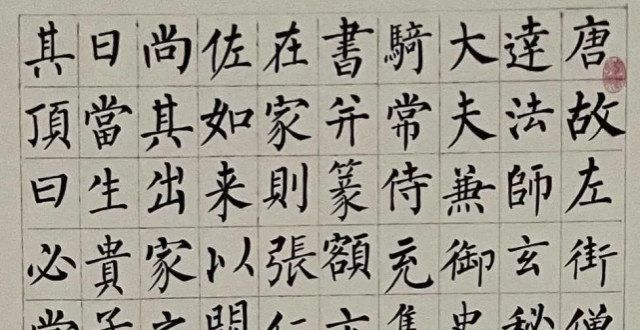 唐故左街僧
達法師玄秘
大夫兼御史
騎常侍充集
書并篆額
在家則張仁
佐如来以
尚其出家之
日當生貴子
其頂曰必當